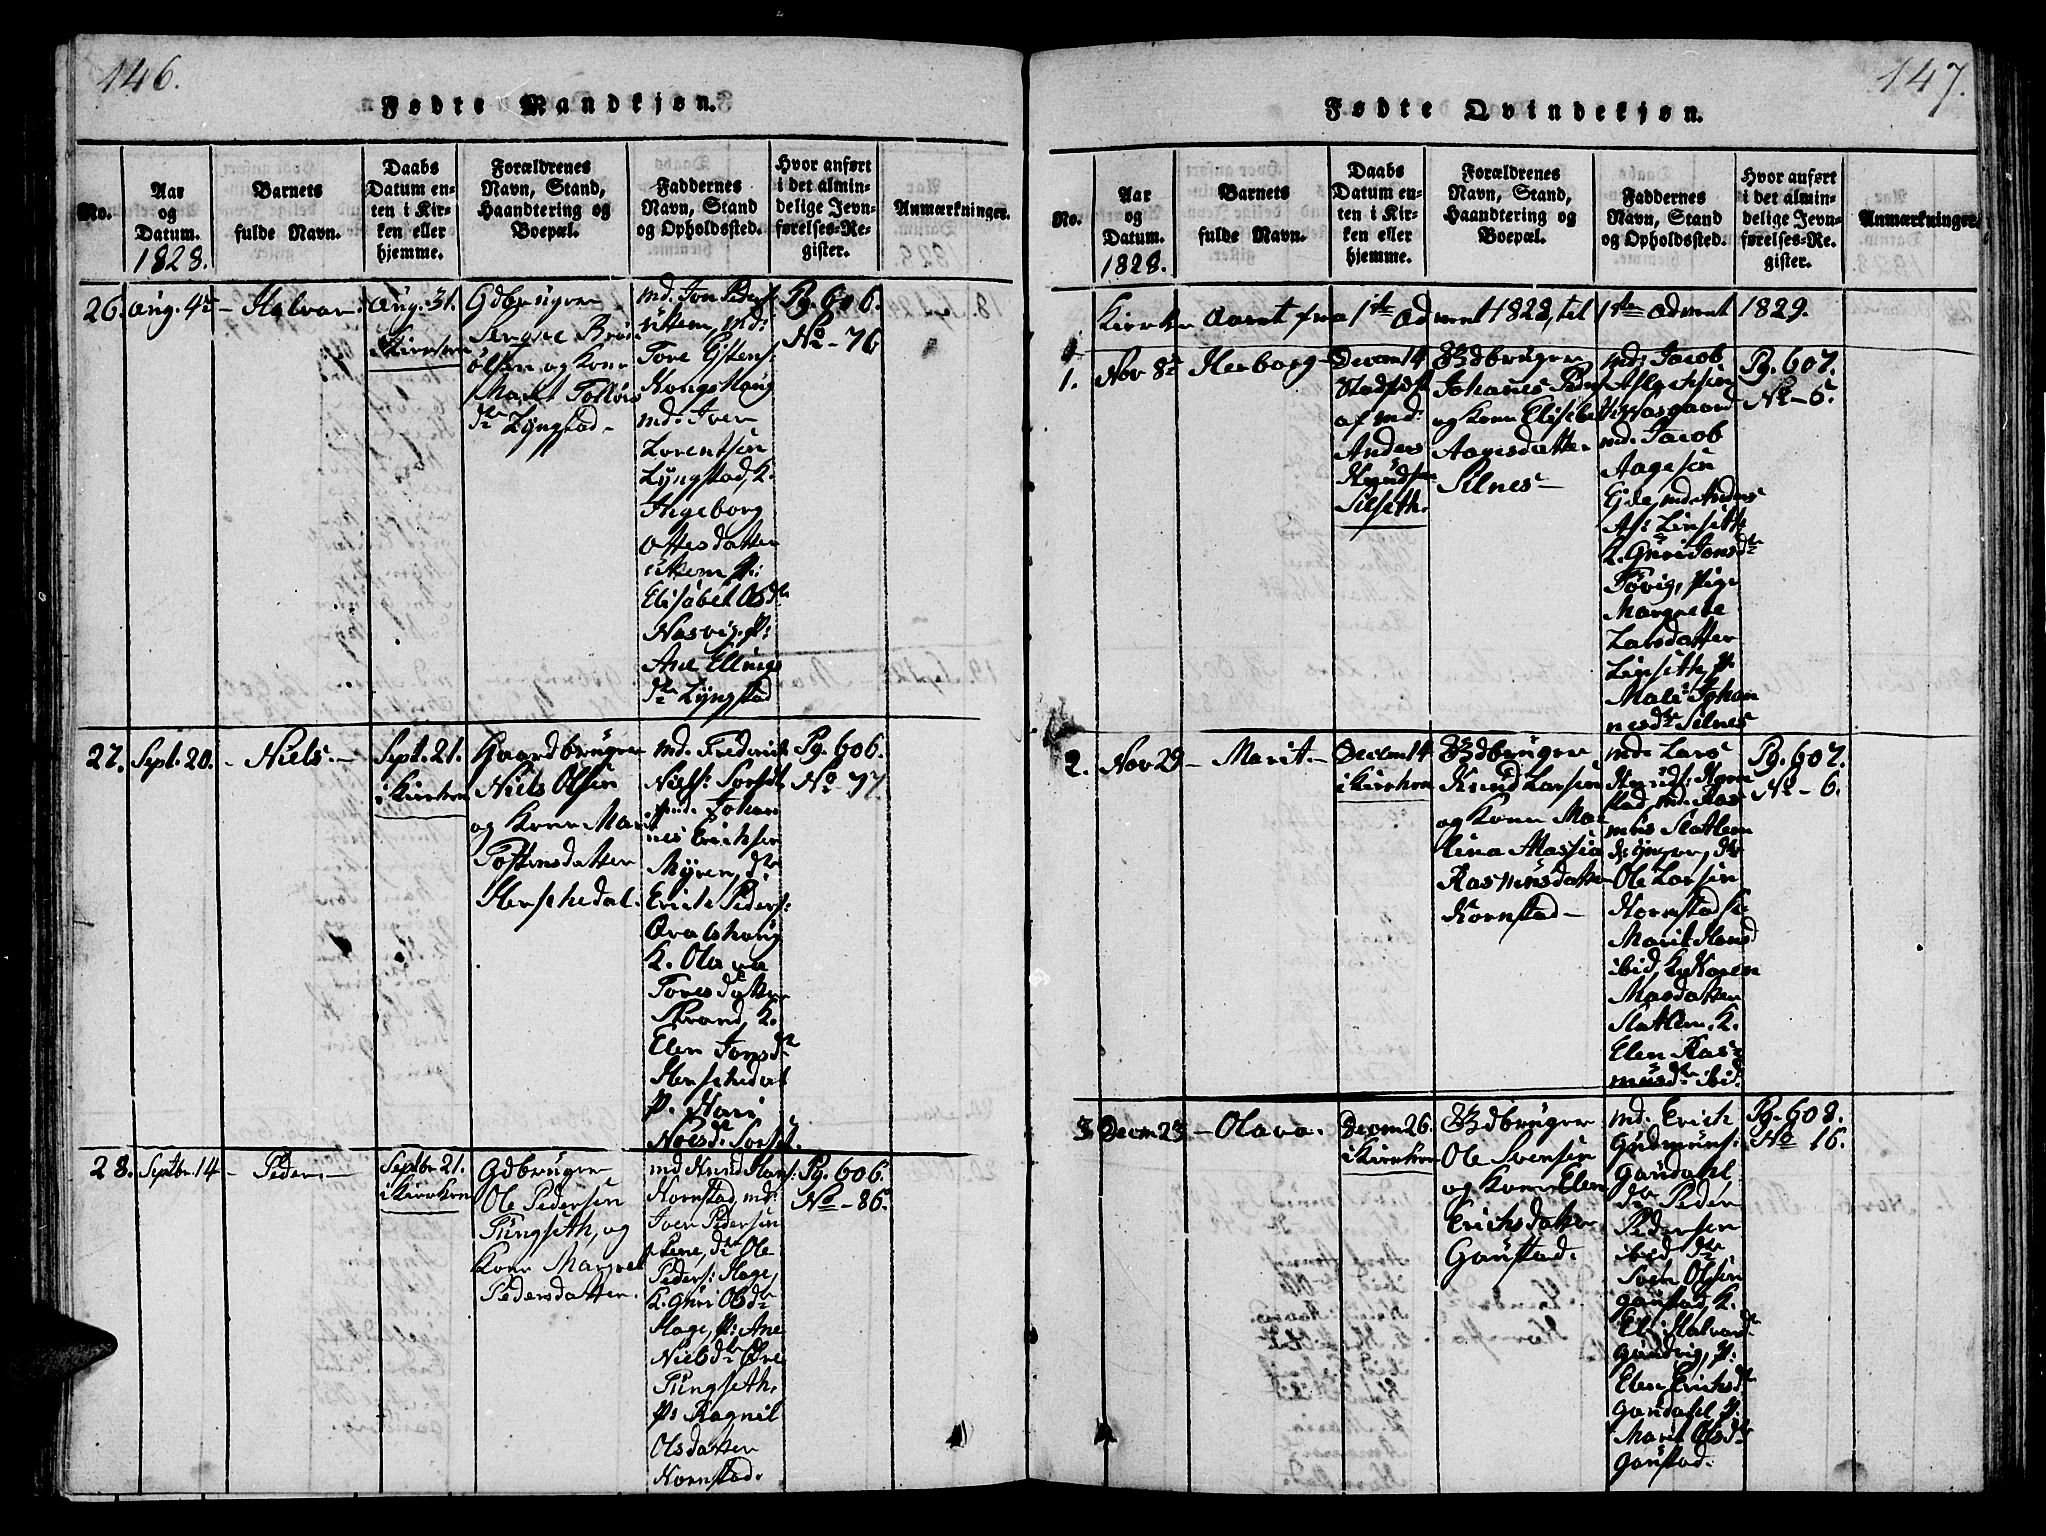 146.
Fødte Mandkjøn.
No.
Aar og Datum. 1828.
Barnets fulde Navn.
Daabs Datum enten i Kirken eller hjemme.
Forældrenes Navn, Stand, Haandtering og Boepæl.
Faddernes Navn, Stand og Opholdssted.
Hvor anført i det almindelige Jevnførelses-Register.
Anmærkninger.
26. Aug. 4de – Halvar.
Aug. 31.
i Kirken
Gdbruger
ølsen og Kone
Marit
dtr Lyngstad –
md. Jon Peders:
md:
Tore
Kongshaug
md. Iver
Lorentsen
Lyngstad, K.
Ingeborg
datter
P:
Elisabet Olsdtr
Nasvig. P:
Ane Ellings
dtr Lyngstad
Pg. 606.
No – 76
27. Sept. 20. – Niels. –
Sept. 21.
i Kirken
Gaardbruger
Niels Olsen
og Kone Marit
Tostensdatter
Henschedal.
md. Frederik
Niels:
md. Johan
nes Erichsen
Myren, do
Erich Peders:
Qvalshaug
K. Olava
Toresdatter
Strand, K.
Elen Jonsdr
Henschedal
P. Mari
Noesd.
Pg. 606.
No 77.
28. Septbr. 14 – Peder. –
Septbr 21.
i Kirken
Gdbruger
Ole Pedersen
Tungseth, og
Kone Margret
Pedersdatter.
md Knud Hans:
Hornstad, md:
Iver Pedersen
dr Ole
Peders: Hage,
K. Guri Olsdr
Hage, P: Ane
Nielsdr Øvre
Tungseth,
P: Ragnil
Olsdatter
Hornstad.
Pg. 606.
No – 86.
147.
Fødte Qvindekjøn.
No.
Aar og Datum. 1828.
Barnets fulde Navn.
Daabs Datum enten i Kirken eller hjemme.
Forældrenes Navn, Stand, Haandtering og Boepæl.
Faddernes Navn, Stand og Opholdssted.
Hvor anført i det almindelige Jevnførelses-Register.
Anmærkninger.
Kirke Aaret fra 1ste Advent 1828, til 1ste Advent 1829.
1. Nov 8de Herborg –
Decem 14
af md:
Anders
Knudsen
Silseth.
Gdbruger
Johannes Peders
og Kone Elisabet
Aagesdatter
Silnes –
md: Jacob
Aslachsen
md. Jacob
Aagesen
Eide, md. Anders
As: Linseth
K. Guri Jonsdr
Tøvig, Pige
Margrete
Larsdatter
Linseth, P.
Mali Johan
nesdr Silnes
Pg. 607.
No – 5.
2. Nov 29 – Marit. –
Decem 14
i Kirken
Gdbruger
Knud Larsen
og Kone Ma-
lina Massia
Rasmusdatter
Hornstad –
md: Lars
Knuds: Horn
stad, md. Ras
mus Slatlem
dr
Ole Larsen
Hornstad
Marit Hansd
ibid, K. Karen
Masdatter
Slatlem. K.
Elen Ras-
musdr ibid.
Pg. 607.
No – 6.
3 Decem 23 – Olava.
Decem 26.
i Kirken
Gdbruger
Ole Svensen
og Kone Elen
Erichsdatter
Gaustad.
md. Erich
Gudmuns:
Gaudahl
dr Peder
Pedersen
ibid dr
Sven Olsen
Gaustad, K.
Eli Halvardr
Gundvig, P:
Elen Erichsdr
Gaudahl P:
Marit Olsdr
Gaustad.
Pg. 608.
No 16.